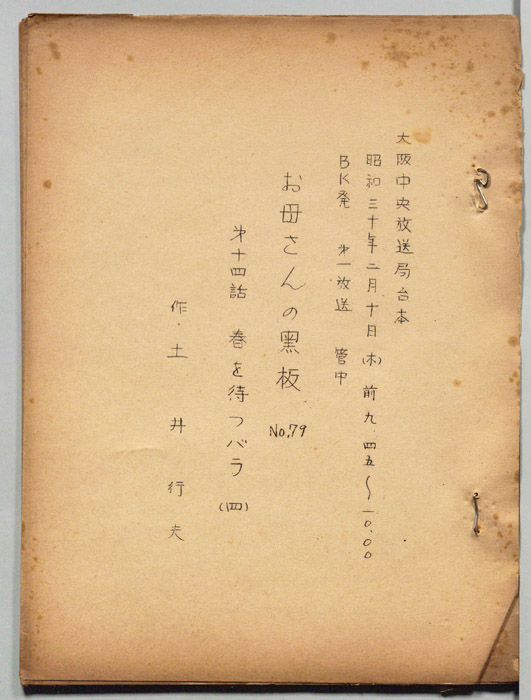 大阪中央放送局台本
昭和三十年二月十日(木)前九.四五〜一〇.〇〇
BK発 第一放送 管中
お母さんの黒板 No.79
第十四話 春を待つバラ(四)
作・土井行夫